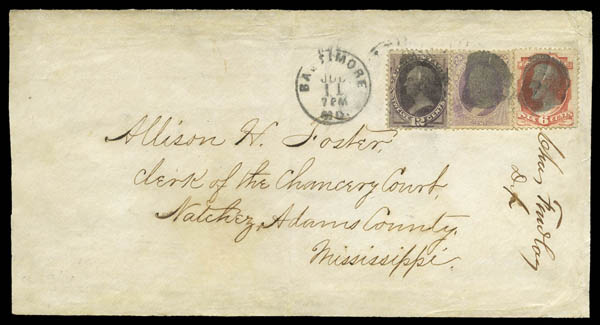 BALTIMORE
JUL
11
7 PM
MD.
Allison H. Foster,
Clerk of the Chancery Court,
Natchez, Adams County,
Mississippi.
Chas. Findlay